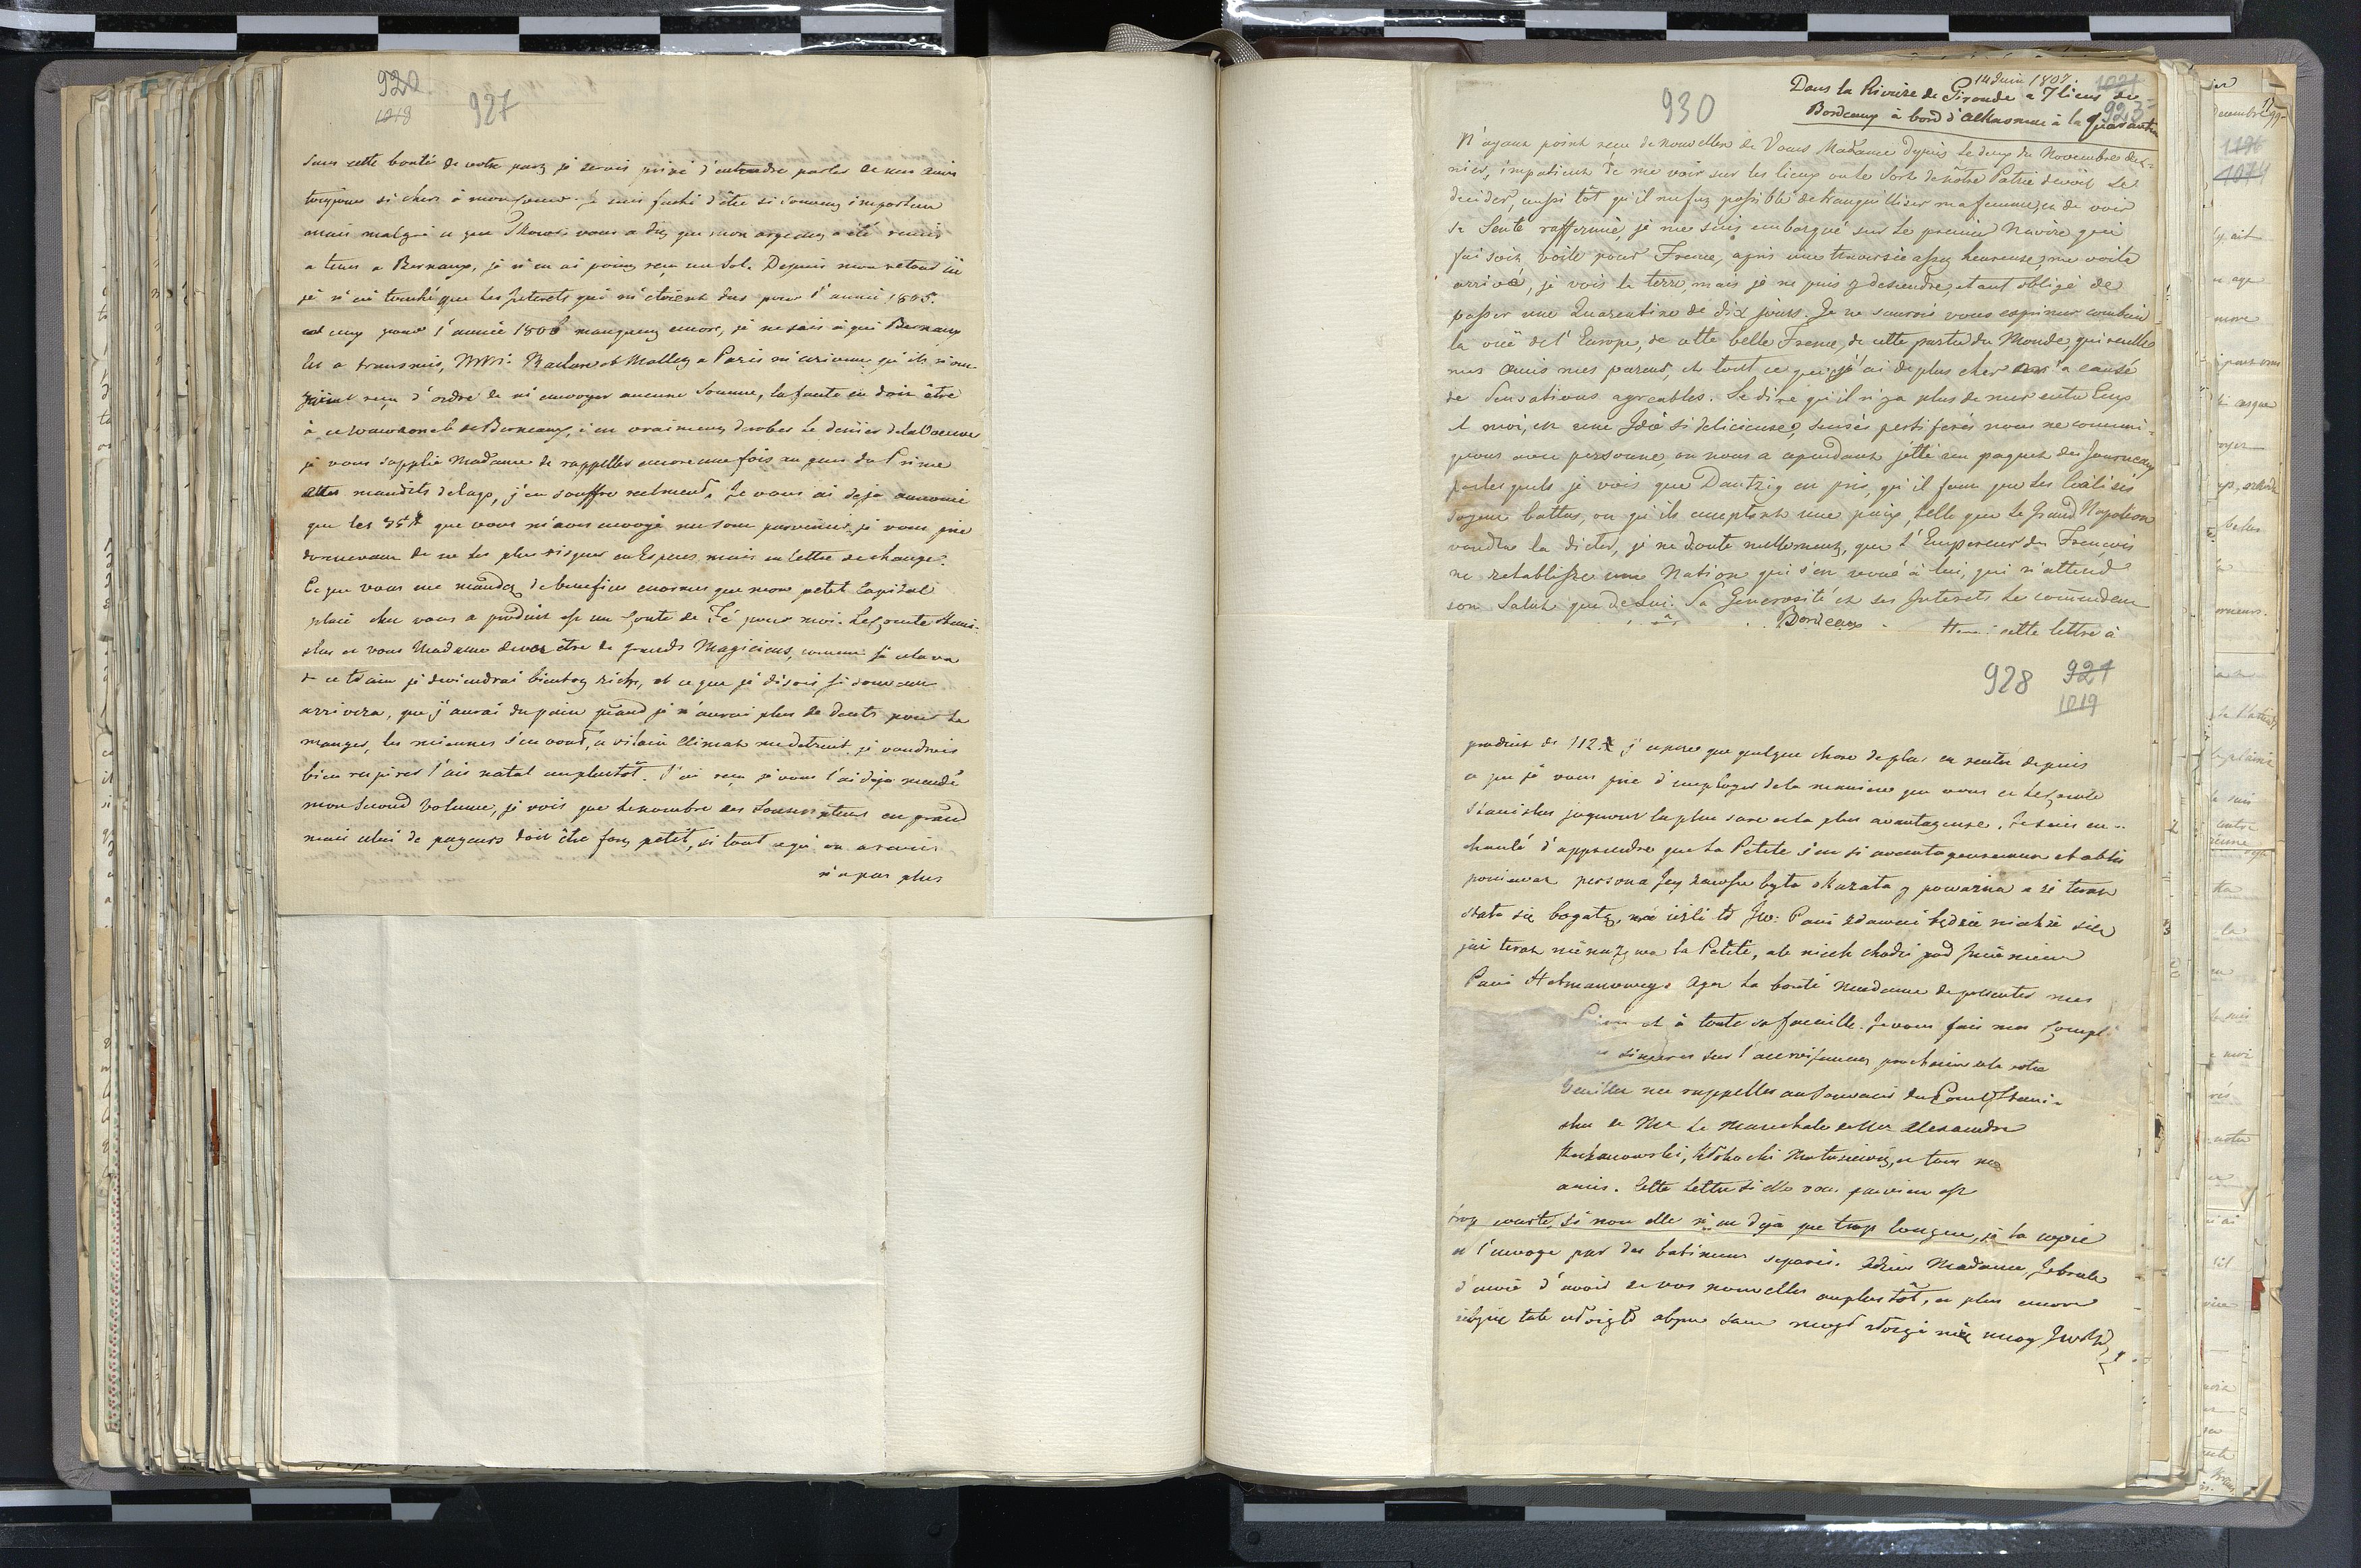 920
1019
927
sans cette bonté de votre part je serois privé d'entendre parler de mes amis
toujours si chers à mon coeur. Je suis faché d'être si souvent importun
mais malgré ce que vous a dit que mon argent a été remis
a tems a Bernaux, je n'en ai point reçu un sol. Depuis mon retour ici
je n'ai touché que les Interets qui m'etoient dus pour l'année 1805.
ceux pour l'année 1806 manquent encore, je ne sais à qui Bernaux
les a transmis, MM: et Mallet a Paris m'ecrivent qu'ils n'ont
point reçu d'ordre de m'envoyer aucune somme, la faute en doit être
à ce de Bernaux, c'est vraiment derober le denier de la Veuve
je vous supplie Madame de rappeller encore une fois au gens du Prince
ces maudits delays, j'en souffre réelment. Je vous ai deja annoncé
que les 35 # que vous m'avez envoyé me sont parvenus, je vous prie
dorenavant de ne les plus risquer en Especes mais en lettre de change.
Ce que vous me mandez de benefices enormes que mon petit Capital
placé chez vous a produit est un Conte de Fé pour moi. Le Comte Stani-
slas et vous Madame devez être de grands Magiciens, comme si cela va
de ce train je deviendrai bientot riche, et ce que je disois si souvent
arrivera, que j'aurai du pain quand je n'aurai plus de dents pour le
manger, les miennes s'en vont, ce vilain Climat me detruit. je voudrois
bien respirer l'air natal au plustôt. J'ai reçu je vous l'ai deja mandé
mon second Volume, je vois que le nombre des Souscripteurs est grand
mais celui de payeurs doit être fort petit, si tout ce qui en
n'a pas plus
930
14 Juin 1807.
1021
923
Dans la Riviere de Gironde a 7 lieus de
Bordeaux à bord d' à la Quarantine
N'ayant point reçu de nouvelles de Vous Madame depuis le deux du Novembre der-
nier, impatient de me voir sur les lieux ou le Sort de nôtre Patrie devoit se
decider, aussi tôt qu'il me fut possible de tranquilliser ma femme, et de voir
sa Senté raffermie, je me suis embarqué sur le premier Navire qui
faisoit voile pour France, après une traversée assez heureuse, me voila
arrivé, je vois la terre mais je ne puis y descendre, etant obligé de
passer une Quarentine de dix jours. Je ne saurois vous exprimer combien
la vüe de l'Europe, de cette belle France, de cette partie du Monde, qui renferme
mes amis mes parens, et tout ce que j'ai de plus cher m'a causé
de Sensations agreables. Se dire qu'il n'ya plus de mer entre Eux
et moi, est une Idée si delicieuse, pestiferés nous ne communi-
quons avec personne, on nous a cependant jetté un paquet des Journeaux
par lesquels je vois que Dantzig est pris, qu'il faut que les Coalisés
soyent battus, ou qu'ils acceptent une paix, telle que le Grand Napoleon
voudra la dicter, je ne doute nullement, que l'Empereur des François
ne retablisse une Nation qui s'est voué à lui, qui n'attend
son Salut que de Lui. Sa Generosité et ses Interets le commendent
Bordeaux cette lettre à
928
921
1019
produit de 112 #, j'espere que quelque chose de plus en rentré depuis
ce que je vous prie d'employer de la maniere que vous et le Comte
Stanislas jugeront la plus sure et la plus avantageuse. Je suis en-
chanté d'apprendre que la Petite s'est si avantageusement etablie
poniewaz persona Jey zawsze była y powazna a ze teraz
stała się bogatą, JW. Pani zdawać będzie niechże się
już teraz nie nazywa la Petite, ale niech chodzi pod Jmieniem
Pani Hetmanowey. Ayez la bonté Madame de presenter mes
et à toute sa famille. Je vous fais mes Compl-
sinceres sur l'accroissement prochain de la votre
Veuillez me rappeller au Souvenir du Comte Stani-
slas de Mr le Marechal de Mr Alexandre
et tous mes
amis. Cette lettre si elle vous parvient est
trop courte, si non elle n'est deja que trop longue, je la copie
et l'envoye par des batimens separés. Adieu Madame, Je brule
d'envie d'avoir de vos nouvelles au plustôt, et plus encore